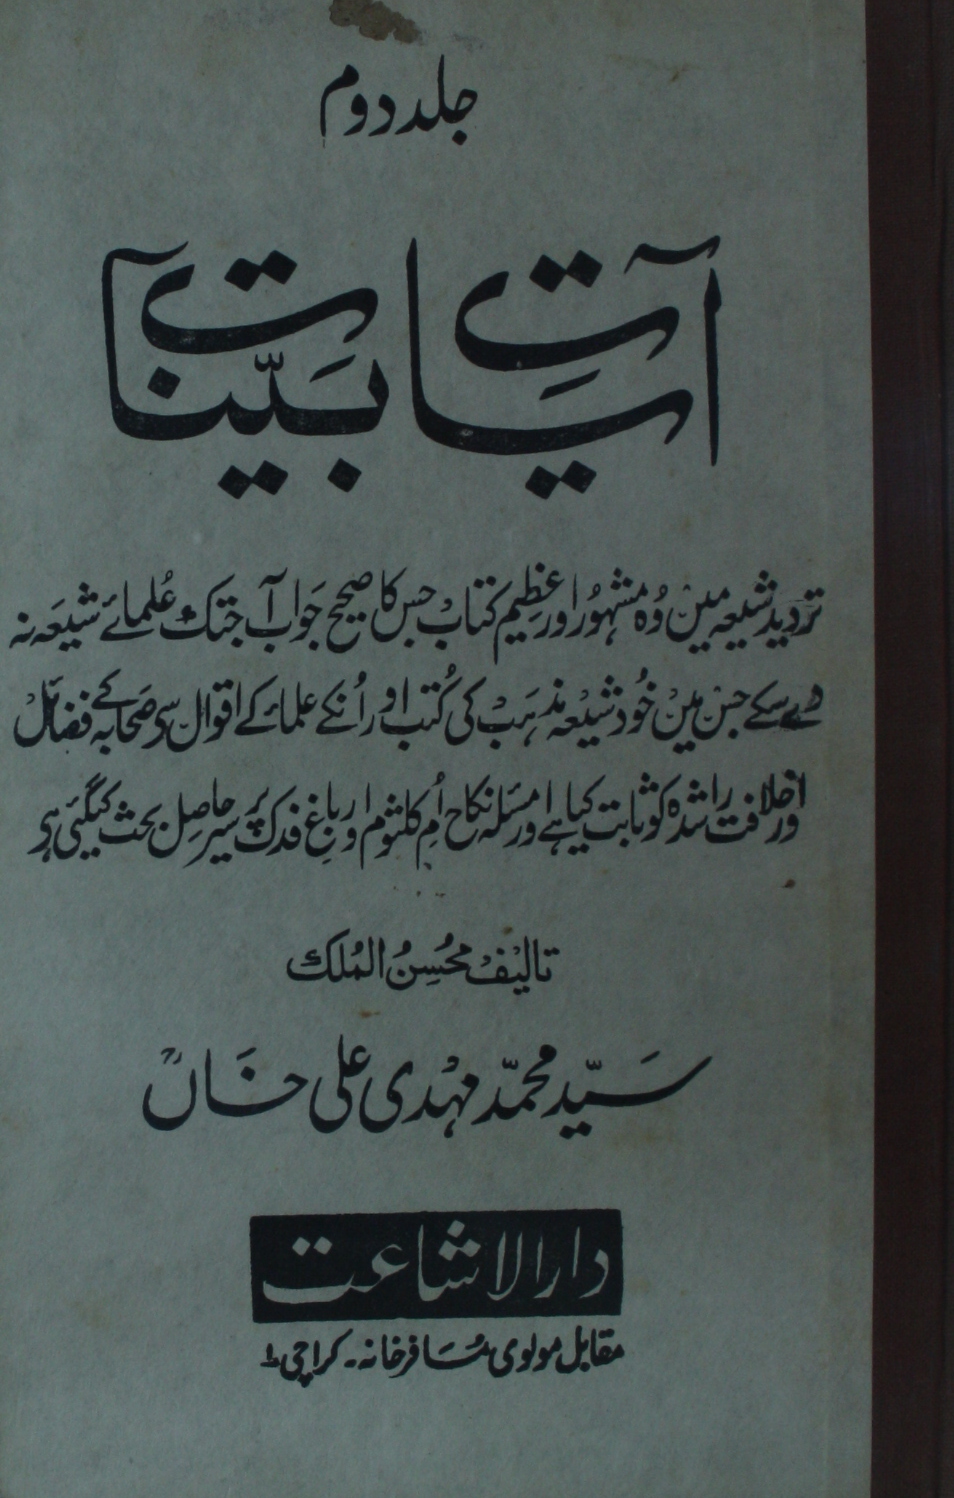 جلد دوم
آیات بیّنات
تردید شیعہ میں وُہ مشہُور اور عظِیم کتاب جس کا صحیح جَواب آجتک عُلمائے شیعَہ نہ
دے سکے جس میں خُود شیعہ مذہَب کی کُتب اور اُنکے علمائے کے اقوال سے صَحابہ کے فضائل
اور خلافت راشدہ کو ثابت کیا ہے اور مسَئلہ نکاح اُم کلثوم اور باغِ فدک پَر سیر حاصِل بحث کیگئی ہے
تالیف محُسِنُ المُلک
سَیّد محمّد مہْدی علی خَاں ؒ
دار الاشاعت
مقابل مولوی مُسَافر خانہ - کراچی ۱